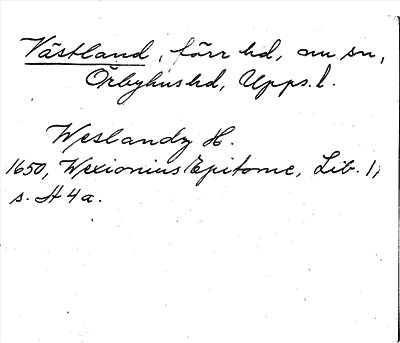 Västland, förr hd, nu sn,
Örbyhus hd, Upps. l.
Weslandz H.
1650, Wexionius Epitome, Lib. 1,
s. H 4 a.